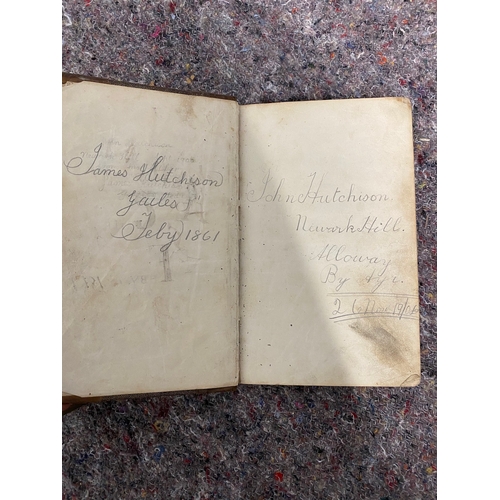 James Hutchison
Gailes
Feby 1861
John Hutchison.
Newark Hill.
Alloway
By Ayr.
26 Nov